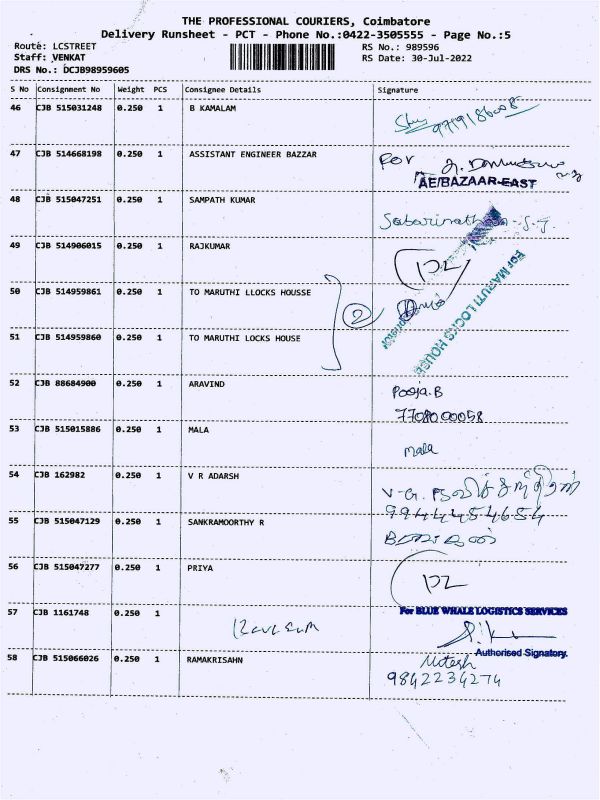 THE PROFESSIONAL COURIERS, Coimbatore
Delivery Runsheet - PCT - Phone No.:0422-3505555 - Page No.:5
Route: LCSTREET RS No.: 989596
Staff: VENKAT RS Date: 30-Jul-2022
DRS No.: DCJB98959605
S No Consignment No Weight PCS Consignee Details Signature
46 CJB 515031248 0.250 1 B KAMALAM
47 CJB 514668198 0.250 1 ASSISTANT ENGINEER BAZZAR For
AE/BAZAAR-EAST
48 CJB 515047251 0.250 1 SAMPATH KUMAR
49 CJB 514906015 0.250 1 RAJKUMAR
50 CJB 514959861 0.250 1 TO MARUTHI LLOCKS HOUSSE 2
For MARUTI LOCKS HOUSE
51 CJB 514959860 0.250 1 TO MARUTHI LOCKS HOUSE
52 CJB 88684900 0.250 1 ARAVIND Pooja.B
7708000058
53 CJB 515015886 0.250 1 MALA Mala
54 CJB 162982 0.250 1 V R ADARSH
9944454654
55 CJB 515047129 0.250 1 SANKRAMOORTHY R
56 CJB 515047277 0.250 1 PRIYA
For BLUE WHALE LOGISTICS SERVICES
57 CJB 1161748 0.250 1
Authorised Signatory.
58 CJB 515066026 0.250 1 RAMAKRISAHN Mitesh
9842234274